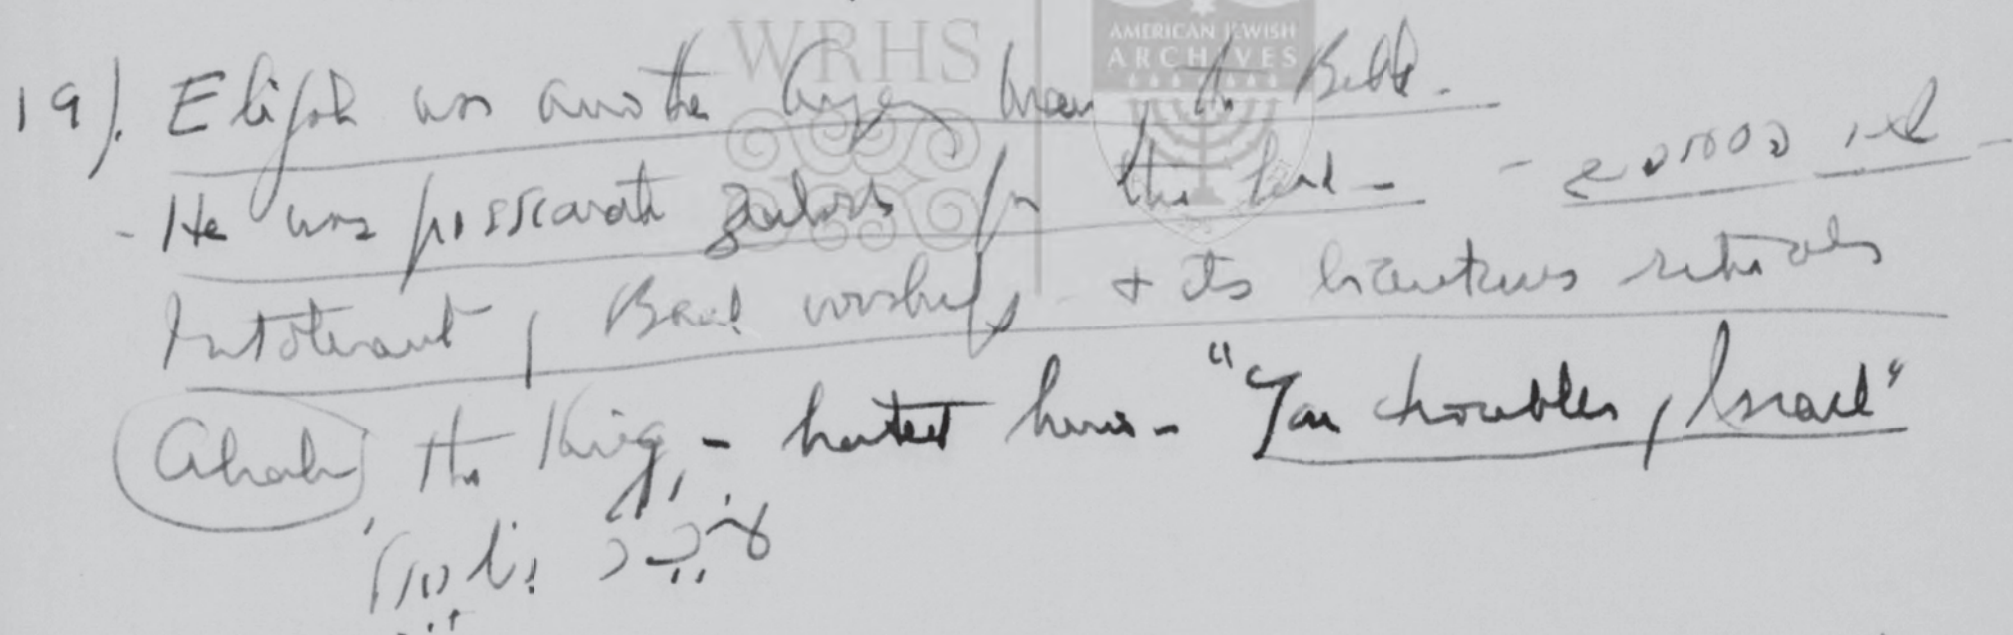 WRHS
AMERICAN JEWISH
ARCHIVES
19). Elijah was another angry man, the Bible.
- He was passionate zealous for the Lord -
Intolerant, Baal worship - & its licentious rituals
Ahab the King, - hated him - "You troubler, Israel"